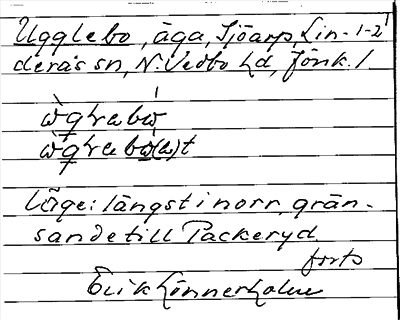 Ugglebo, äga, Sjöarp, Lin- 1-2
deräs sn, N. Vedbo hd, Jönk. l
Läge: längst i norr, grän-
sande till Packeryd.
forts
Erik Lönnerholm